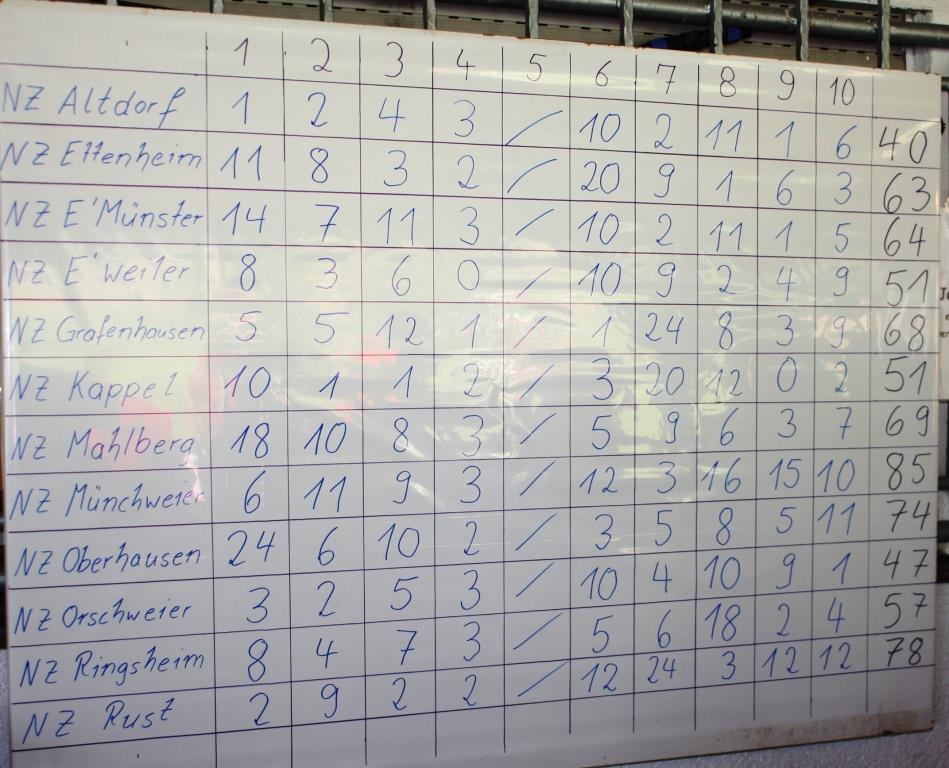 1 2 3 4 5 6 7 8 9 10
NZ Altdorf 1 2 4 3 / 10 2 11 1 6 40
NZ Ettenheim 11 8 3 2 / 20 9 1 6 3 63
NZ E'Münster 14 7 11 3 / 10 2 11 1 5 64
NZ E'weiler 8 3 6 0 / 10 9 2 4 9 51
NZ Grafenhausen 5 5 12 1 / 1 24 8 3 9 68
NZ Kappel 10 1 1 2 / 3 20 12 0 2 51
NZ Mahlberg 18 10 8 3 / 5 9 6 3 7 69
NZ Münchweier 6 11 9 3 / 12 3 16 15 10 85
NZ Oberhausen 24 6 10 2 / 3 5 8 5 11 74
NZ Orschweier 3 2 5 3 / 10 4 10 9 1 47
NZ Ringsheim 8 4 7 3 / 5 6 18 2 4 57
NZ Rust 2 9 2 2 / 12 24 3 12 12 78